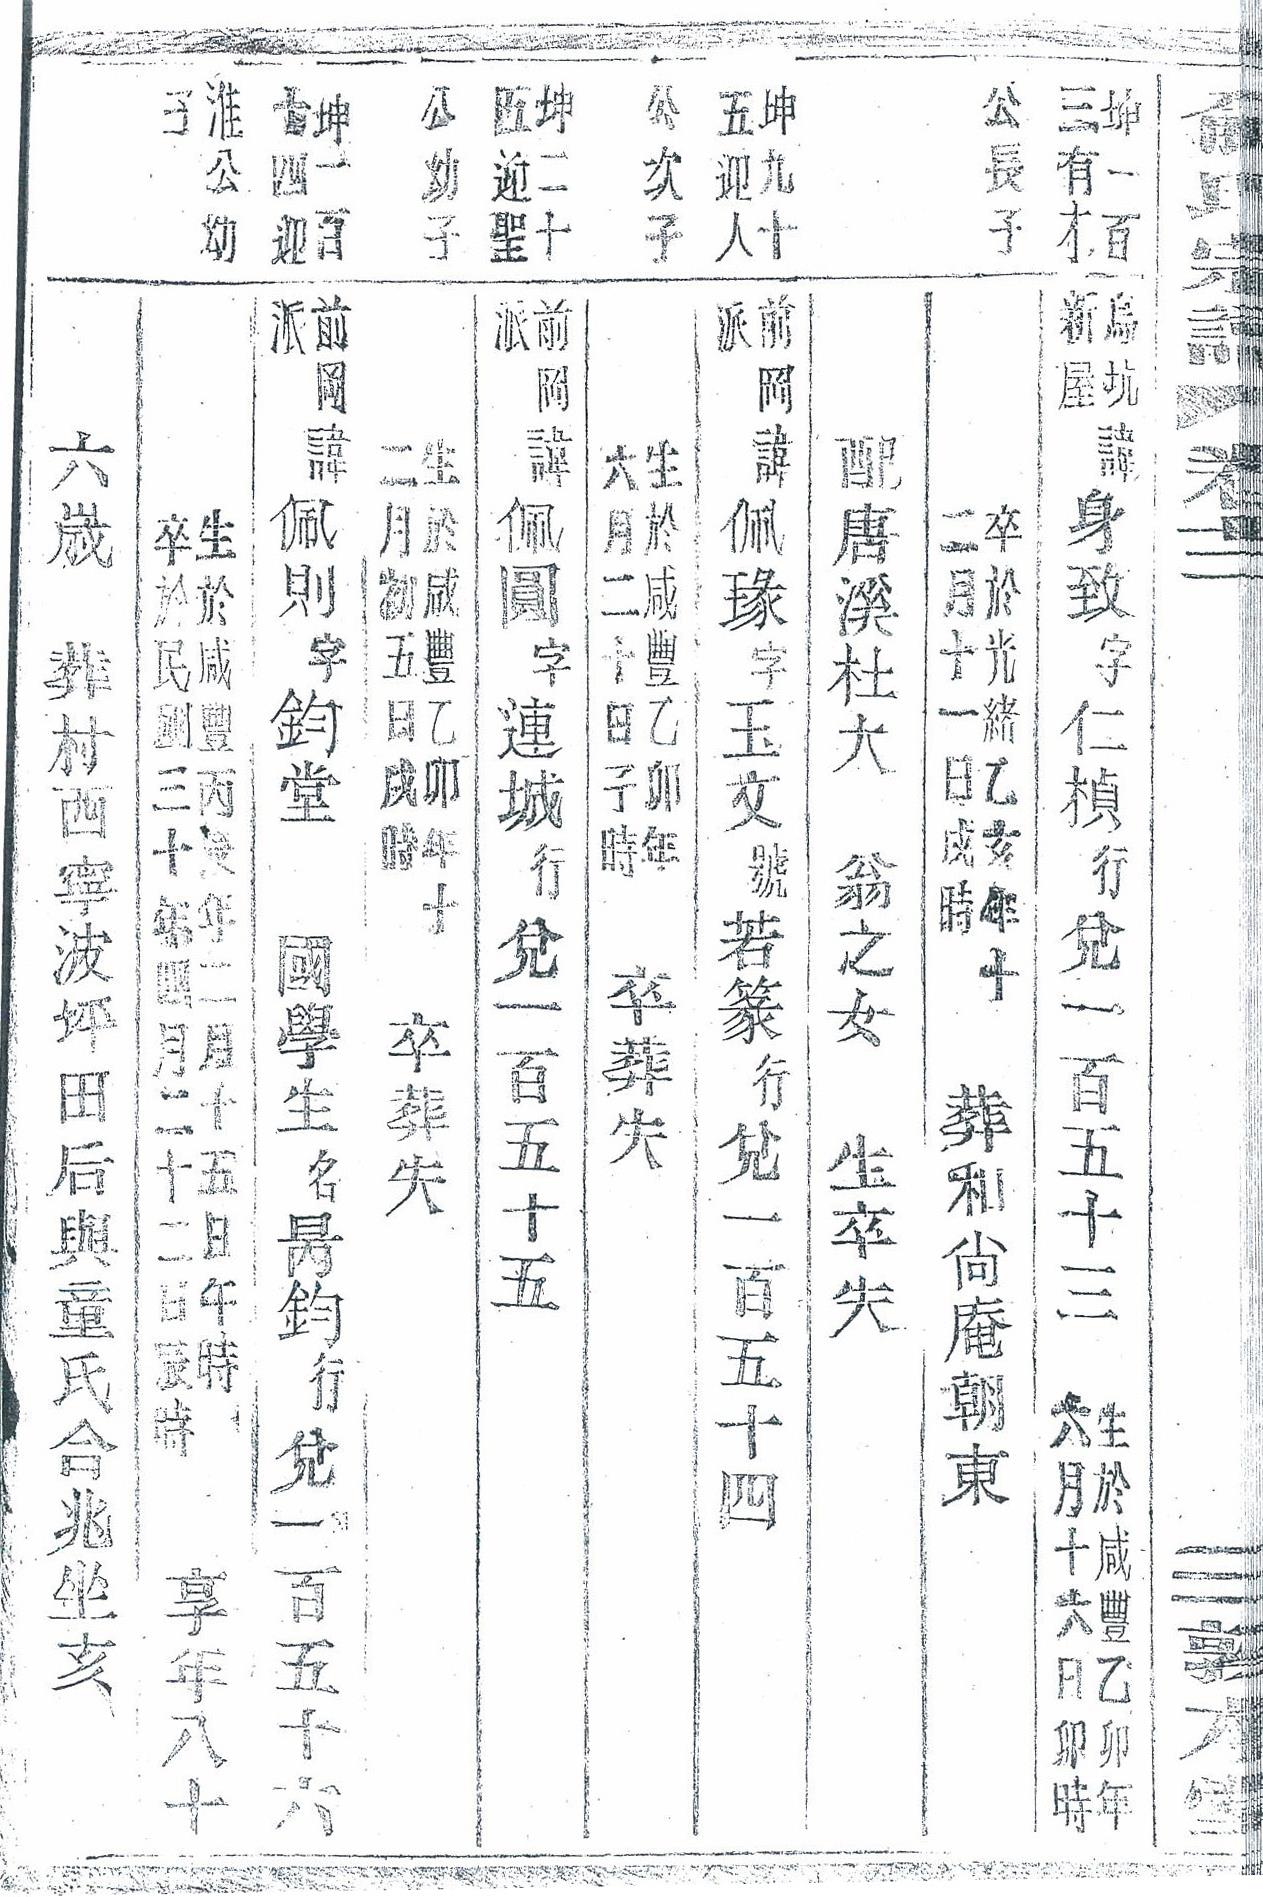 宗譜 卷三
坤一百
三有才
公長子
坤九十
五迎人
公次子
坤二十
五迎聖
公幼子
坤一百
十四迎
淮公幼
子
烏坑
新屋
諱身致字仁楨行兌一百五十三
生於咸豐乙卯年
六月十六日卯時
卒於光緒乙亥年十
二月十一日戌時
葬和尙庵朝東
配唐溪杜大 翁之女 生卒失
前岡
派
諱佩瑑字玉文號若篆行兌一百五十四
生於咸豐乙卯年
六月二十日子時
卒葬失
前岡
派
諱佩圓字連城行兌一百五十五
生於咸豐乙卯年十
二月初五日戌時
卒葬失
前岡
派
諱佩則字鈞堂 國學生名昺鈞行兌一百五十六
生於咸豐丙辰年二月十五日午時
卒於民國三十年四月二十二日辰時
享年八十
六歲 葬村西寧波坪田后與童氏合兆坐亥